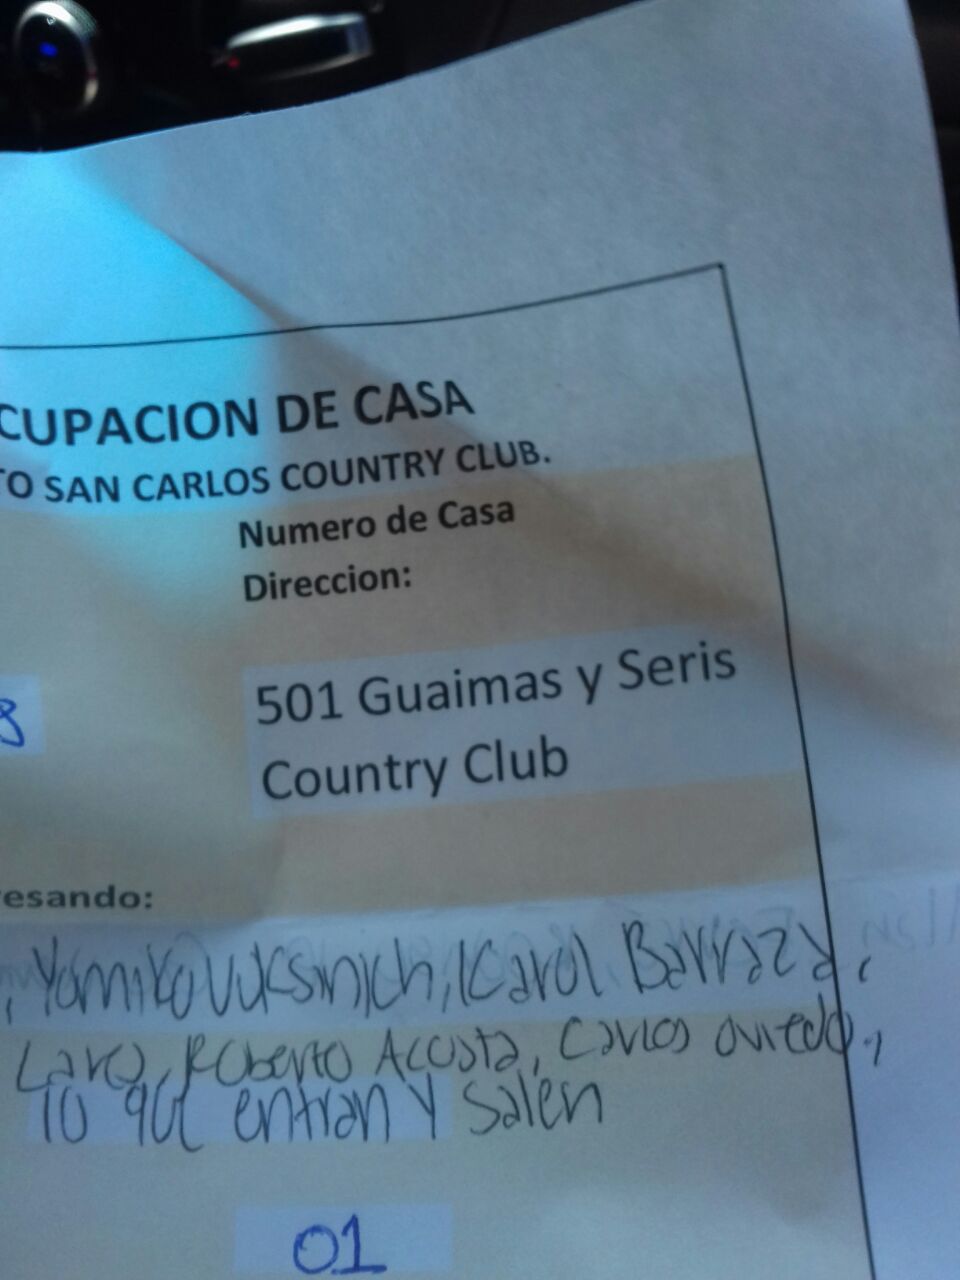 CUPACION DE CASA
TO SAN CARLOS COUNTRY CLUB.
Numero de Casa
Direccion:
501 Guaimas y Seris
8
Country Club
resando:
, Yamiko Vucsinich, Karol Barraza,
Roberto Acosta, Carlos Oviedo,
10 que entran y salen
01